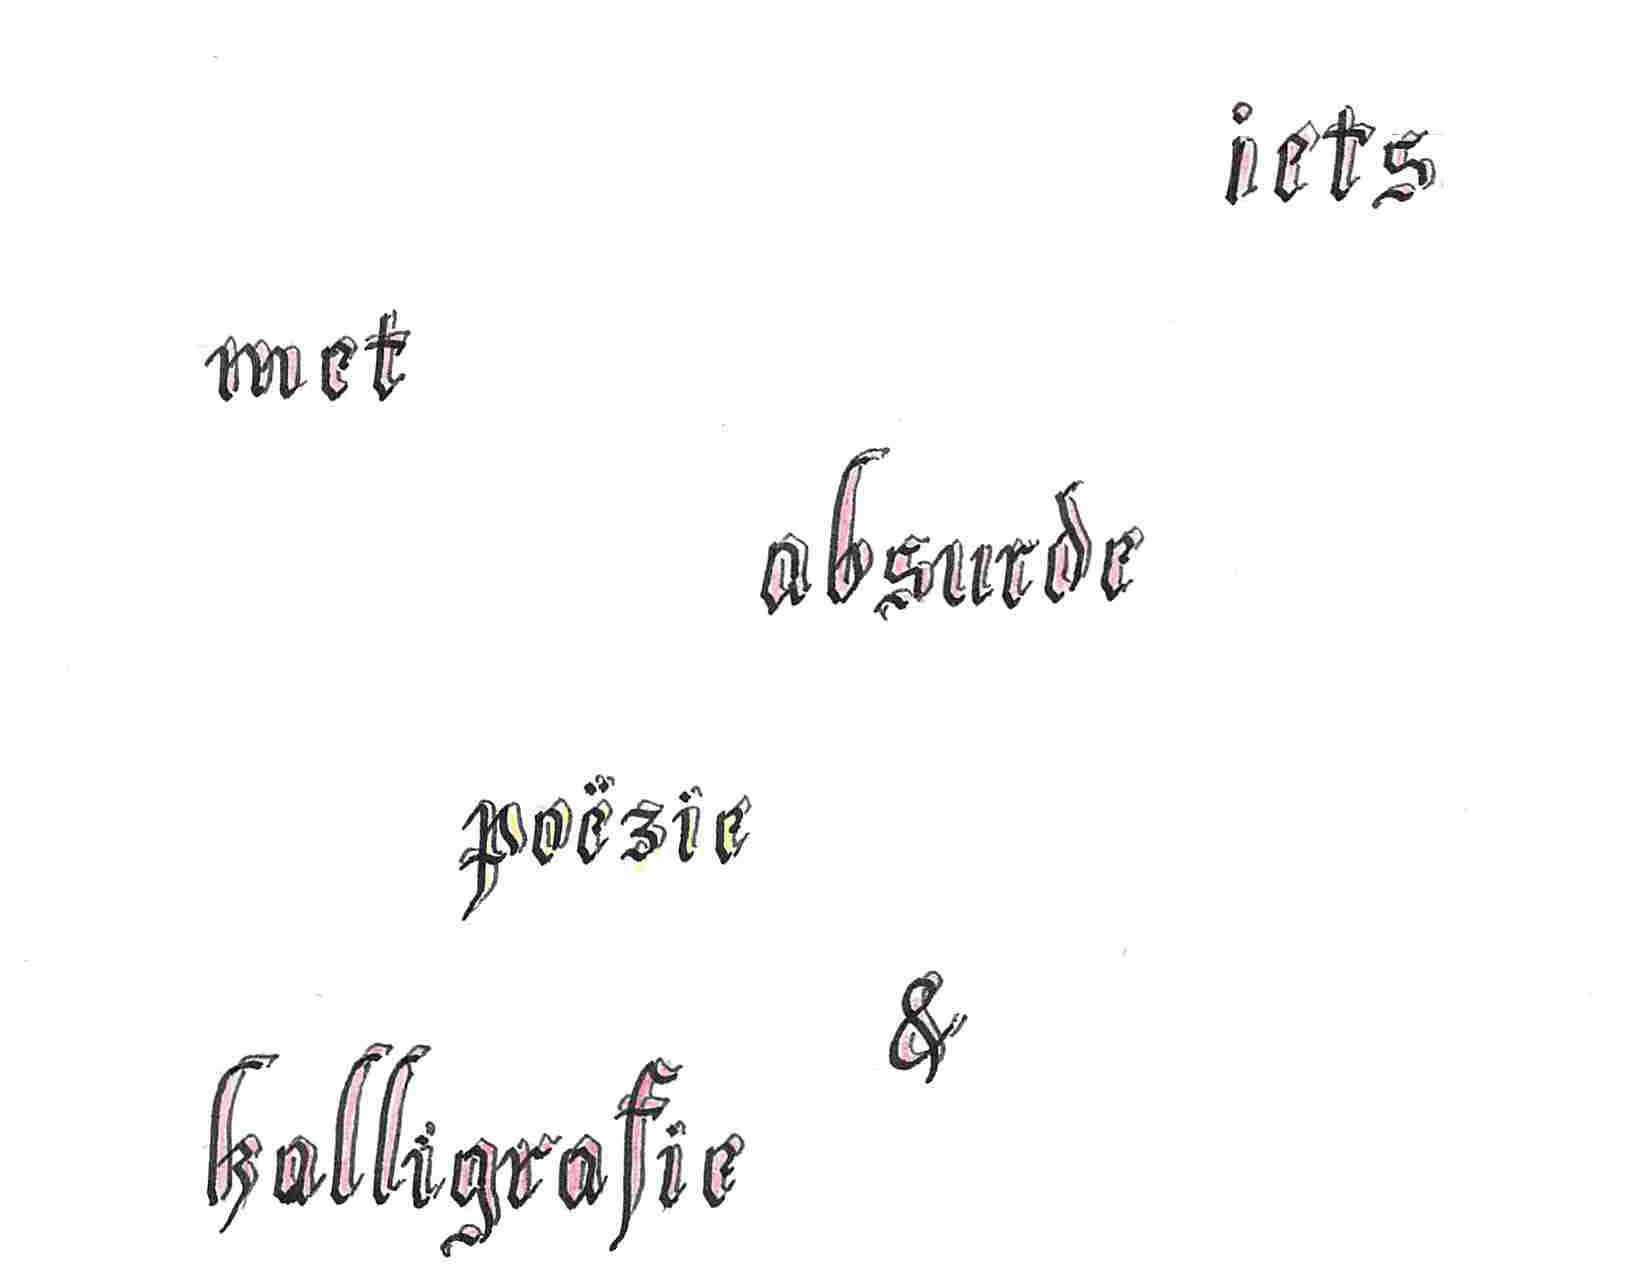 iets
met
absurde
poëzie
&
kalligrafie